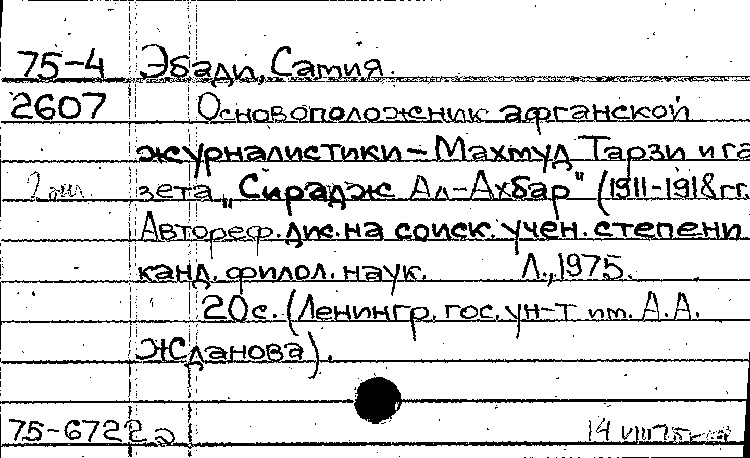 75-4 Эбади, Сатия.
2607 Основоположник афганской
журналистики - Махмуд Тарзи и га
2 экз. зета „Сирадж Ал-Ахбар" (1911-1918 гг.
Автореф. дис. на соиск. учен. степени
канд. филол. наук. Л., 1975.
20с. (Ленингр. гос. ун-т им. А.А.
Жданова).
75-6722а 14 VIII 75